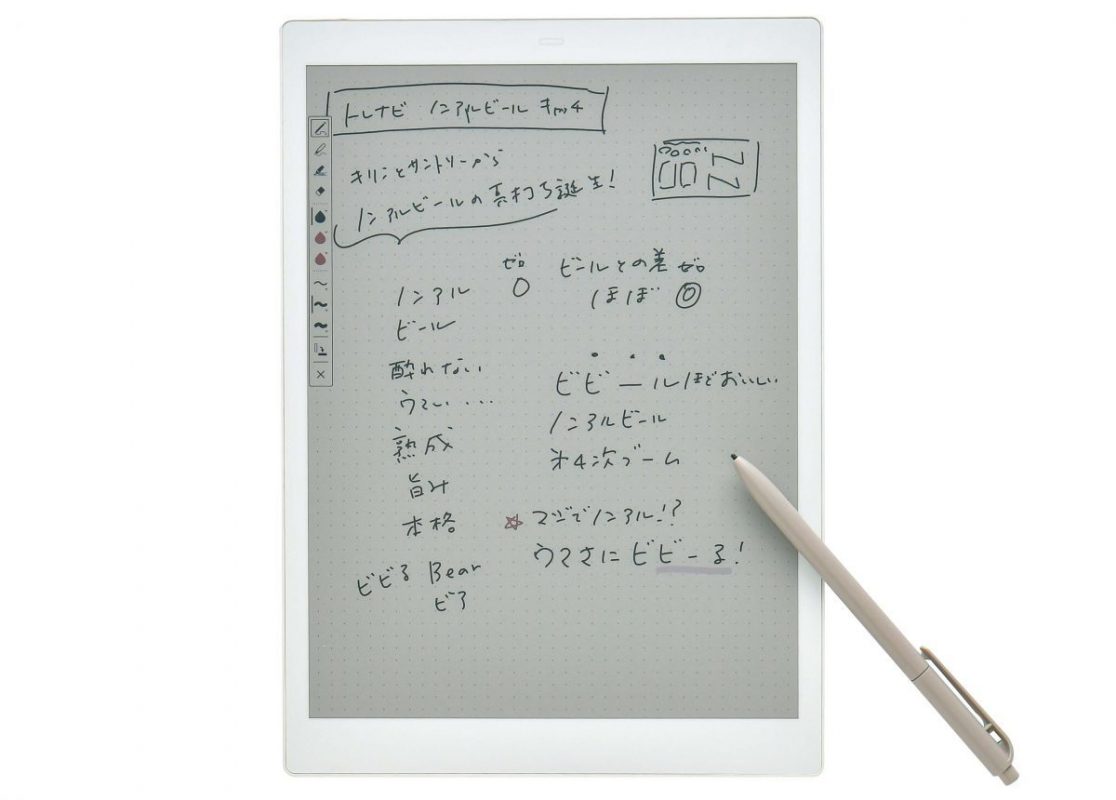 トレナビ ノンアルビール
キリンとサントリーから
ノンアルビールの真打ち誕生!
ノンアル
ビール
酔れない
ウマい・・・
熟成
旨み
本格
ビビる Bear
ビア
ゼロ
0
ビールとの差 ゼロ
ほぼ 0
ビビールほどおいしい
ノンアルビール
第4次ブーム
☆ マジでノンアル!?
ウマさにビビーる!